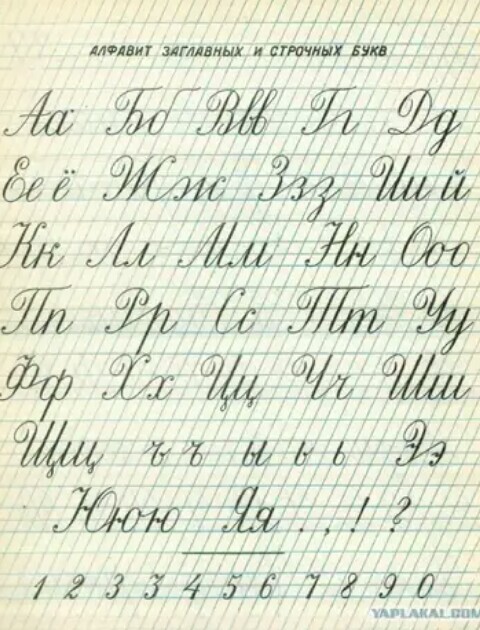 АЛФАВИТ ЗАГЛАВНЫХ И СТРОЧНЫХ БУКВ
Аа Бб Ввв Гг Дд
Ее ё Жж Ззз Ии й
Кк Лл Мм Нн Ооо
Пп Рр Сс Тт Уу
Фф Хх Цц Чч Шш
Щщ ъ ъ ы ь ь Ээ
Ююю Яя . , ! ?
1 2 3 3 4 5 6 7 8 9 0
YAPLAKAL.COM